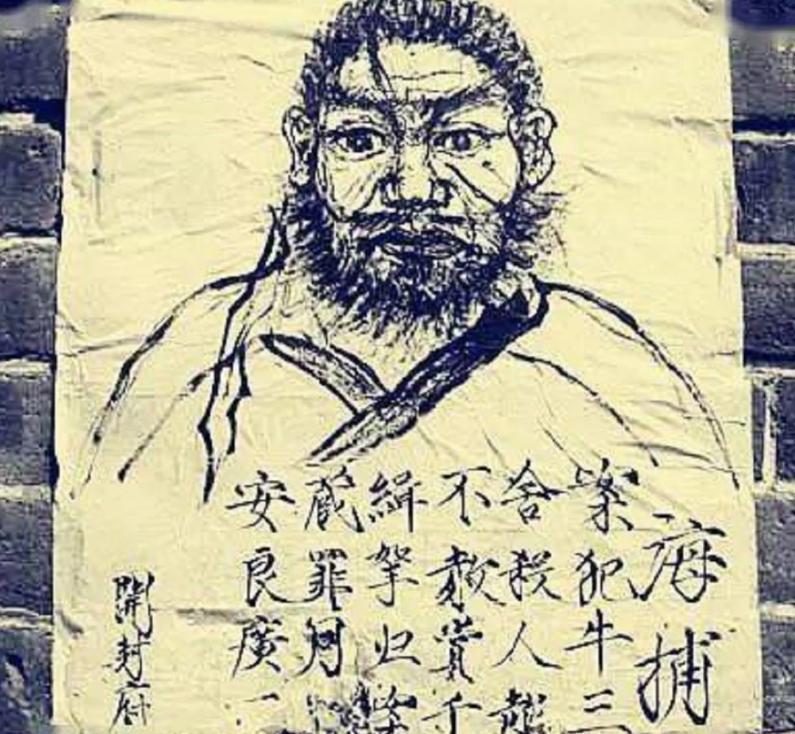 海捕
案犯牛二
舍殺人
不赦賞千
緝拏归案
藏罪同
安良廣
開封府